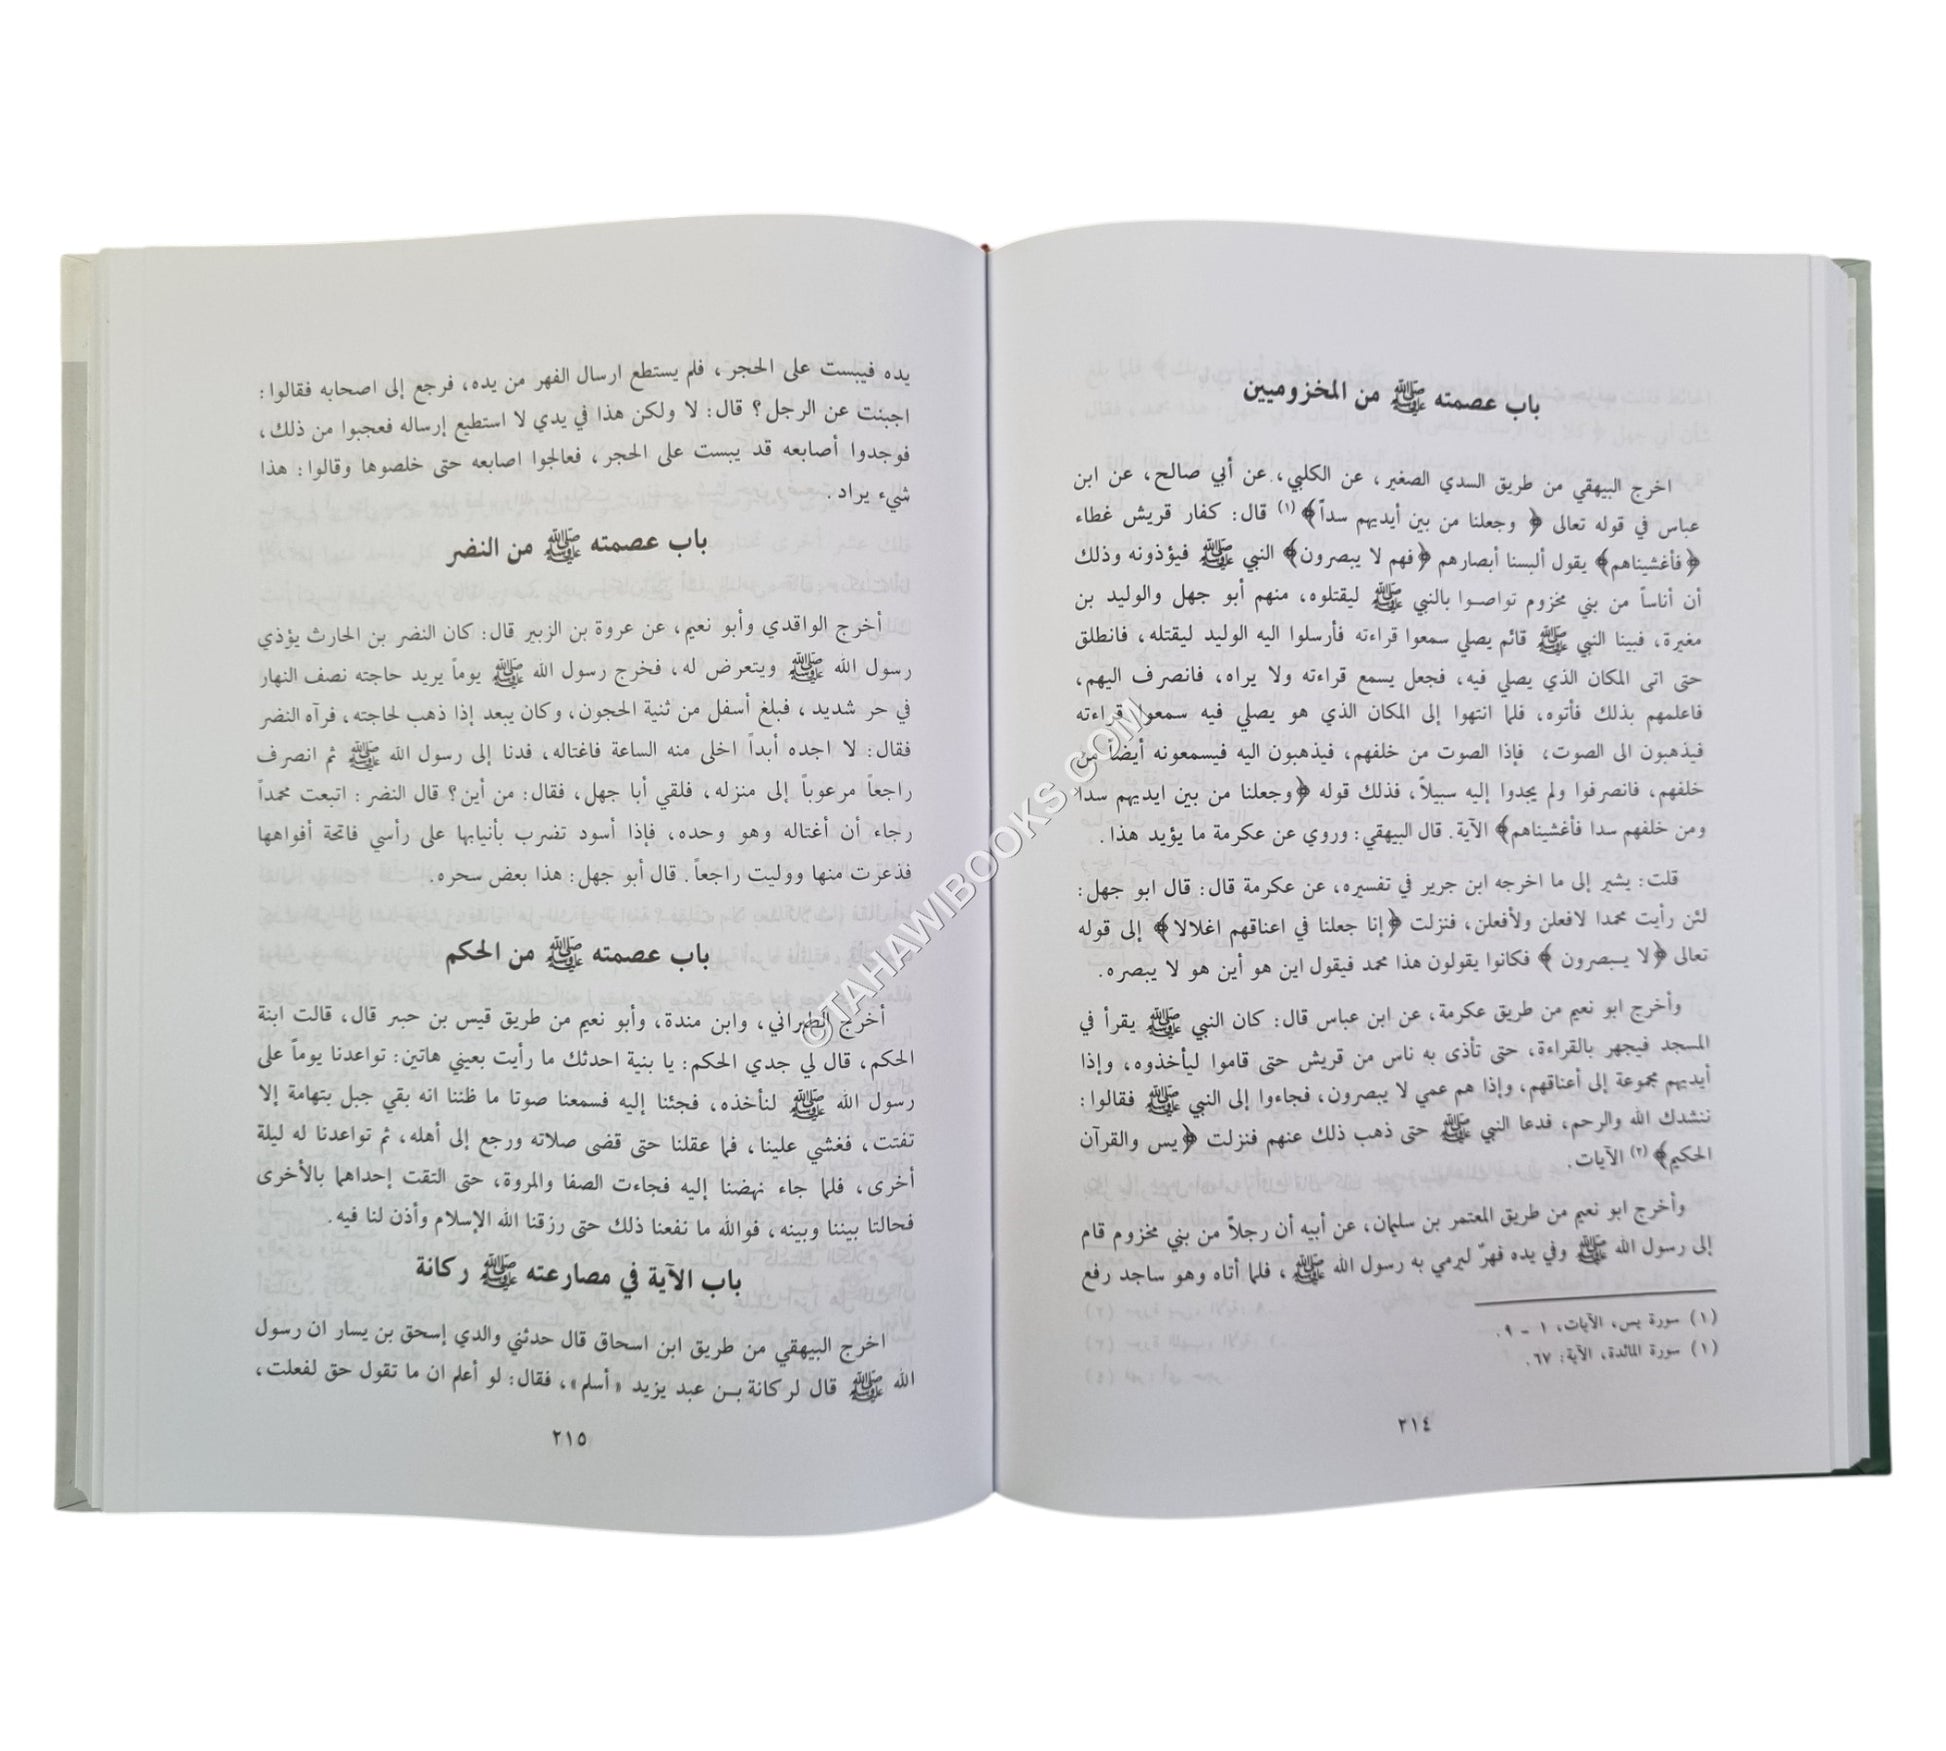 باب عصمته ﷺ من المخزوميين
اخرج البيهقي من طريق السدي الصغير، عن الكلبي، عن أبي صالح، عن ابن
عباس في قوله تعالى ﴿ وجعلنا من بين أيديهم سداً﴾ (١) قال: كفار قريش غطاء
﴿فأغشيناهم﴾ يقول ألبسنا أبصارهم ﴿فهم لا يبصرون﴾ النبي ﷺ فيؤذونه وذلك
أن أناساً من بني مخزوم تواصوا بالنبي ﷺ ليقتلوه، منهم أبو جهل والوليد بن
مغيرة، فبينا النبي ﷺ قائم يصلي سمعوا قراءته فأرسلوا اليه الوليد ليقتله، فانطلق
حتى اتى المكان الذي يصلي فيه، فجعل يسمع قراءته ولا يراه، فانصرف اليهم،
فاعلمهم بذلك فأتوه، فلما انتهوا إلى المكان الذي هو يصلي فيه سمعوا قراءته
فيذهبون الى الصوت، فإذا الصوت من خلفهم، فيذهبون اليه فيسمعونه أيضاً من
خلفهم، فانصرفوا ولم يجدوا إليه سبيلاً، فذلك قوله ﴿وجعلنا من بين ايديهم سدا
ومن خلفهم سدا فأغشيناهم﴾ الآية. قال البيهقي: وروي عن عكرمة ما يؤيد هذا.
قلت: يشير إلى ما اخرجه ابن جرير في تفسيره، عن عكرمة قال: قال ابو جهل:
لئن رأيت محمدا لافعلن ولأفعلن، فنزلت ﴿إنا جعلنا في اعناقهم اغلالا﴾ إلى قوله
تعالى ﴿لا يبصرون ﴾ فكانوا يقولون هذا محمد فيقول اين هو أين هو لا يبصره.
وأخرج ابو نعيم من طريق عكرمة، عن ابن عباس قال: كان النبي ﷺ يقرأ في
المسجد فيجهر بالقراءة، حتى تأذى به ناس من قريش حتى قاموا ليأخذوه، وإذا
أيديهم مجموعة إلى أعناقهم، وإذا هم عمي لا يبصرون، فجاءوا إلى النبي ﷺ فقالوا:
ننشدك الله والرحم، فدعا النبي ﷺ حتى ذهب ذلك عنهم فنزلت ﴿يس والقرآن
الحكيم﴾ (٢) الآيات.
وأخرج ابو نعيم من طريق المعتمر بن سليمان، عن أبيه أن رجلاً من بني مخزوم قام
إلى رسول الله ﷺ وفي يده فهرّ ليرمي به رسول الله ﷺ، فلما أتاه وهو ساجد رفع
(١) سورة يس، الآيات، ١ - ٩.
(١) سورة المائدة، الآية: ٦٧.
٢١٤
يده فيبست على الحجر، فلم يستطع ارسال الفهر من يده، فرجع إلى اصحابه فقالوا:
اجبنت عن الرجل؟ قال: لا ولكن هذا في يدي لا استطيع إرساله فعجبوا من ذلك،
فوجدوا أصابعه قد يبست على الحجر، فعالجوا اصابعه حتى خلصوها وقالوا: هذا
شيء يراد.
باب عصمته ﷺ من النضر
أخرج الواقدي وأبو نعيم، عن عروة بن الزبير قال: كان النضر بن الحارث يؤذي
رسول الله ﷺ ويتعرض له، فخرج رسول الله ﷺ يوماً يريد حاجته نصف النهار
في حر شديد، فبلغ أسفل من ثنية الحجون، وكان يبعد إذا ذهب لحاجته، فرآه النضر
فقال: لا اجده أبداً اخلى منه الساعة فاغتاله، فدنا إلى رسول الله ﷺ ثم انصرف
راجعاً مرعوباً إلى منزله، فلقي أبا جهل، فقال: من أين؟ قال النضر: اتبعت محمداً
رجاء أن أغتاله وهو وحده، فإذا أسود تضرب بأنيابها على رأسي فاتحة أفواهها
فذعرت منها ووليت راجعاً. قال أبو جهل: هذا بعض سحره.
باب عصمته ﷺ من الحكم
أخرج الطبراني، وابن مندة، وأبو نعيم من طريق قيس بن حبتر قال، قالت ابنة
الحكم، قال لي جدي الحكم: يا بنية احدثك ما رأيت بعيني هاتين: تواعدنا يوماً على
رسول الله ﷺ لنأخذه، فجئنا إليه فسمعنا صوتا ما ظننا انه بقي جبل بتهامة إلا
تفتت، فغشي علينا، فما عقلنا حتى قضى صلاته ورجع إلى أهله، ثم تواعدنا له ليلة
أخرى، فلما جاء نهضنا إليه فجاءت الصفا والمروة، حتى التقت إحداهما بالأخرى
فحالتا بيننا وبينه، فوالله ما نفعنا ذلك حتى رزقنا الله الإسلام وأذن لنا فيه.
باب الآية في مصارعته ﷺ ركانة
اخرج البيهقي من طريق ابن اسحاق قال حدثني والدي إسحق بن يسار ان رسول
الله ﷺ قال لركانة بن عبد يزيد «أسلم»، فقال: لو أعلم ان ما تقول حق لفعلت،
٢١٥
©TAHAWIBOOKS.COM